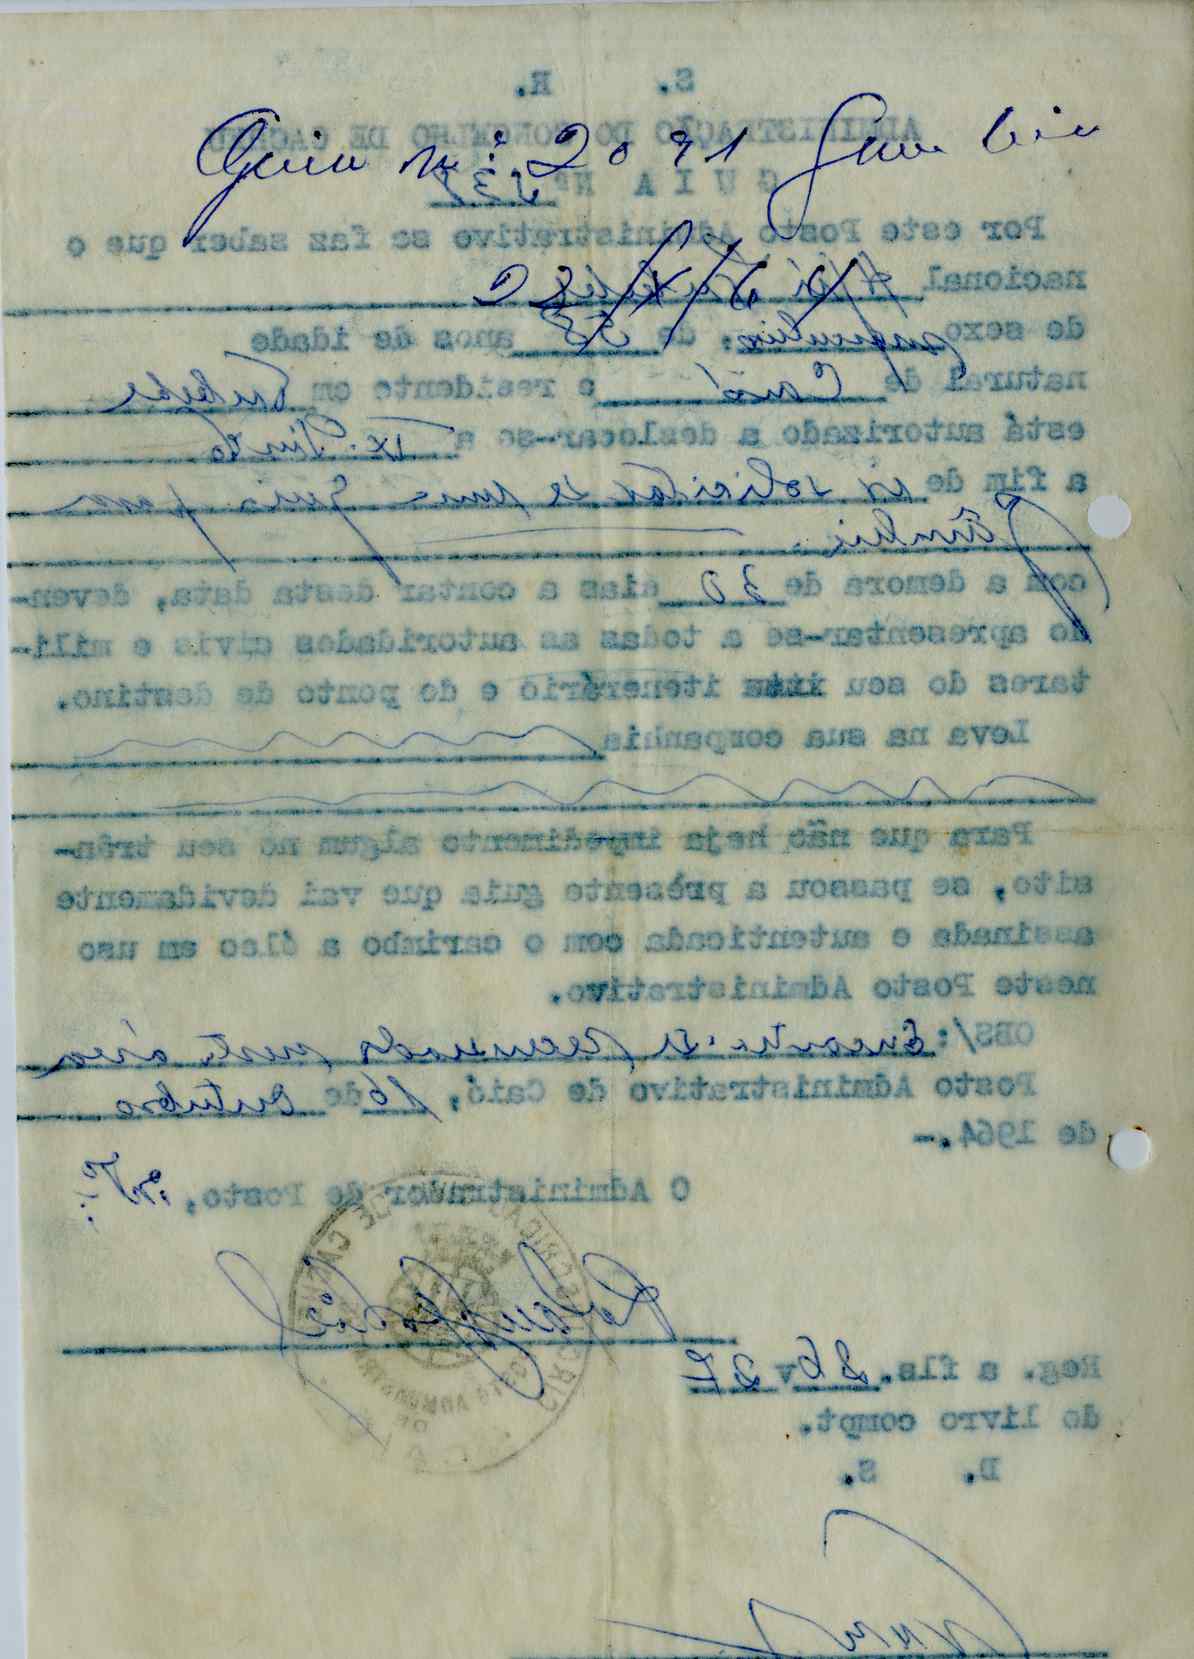 S. R.
ADMINISTRAÇÃO DO CONCELHO DE CACHEU
Guia nº 2091 Gambia
GUIA Nº
Por este Posto Administrativo se faz saber que o
nacional
de sexo masculino, de 58 anos de idade
natural de Caió e residente em
está autorizado a deslocar-se a
a fim de ir solicitar se uma guia para
Gâmbia.
com a demora de 30 dias a contar desta data, deven-
do apresentar-se a todas as autoridades civis e mili-
tares do seu itenerário e do ponto de destino.
Leva na sua companhia
Para que não haja impedimento algum no seu trân-
sito, se passou a présente guia que vai devidamente
assinada e autenticada com o carimbo a óleo em uso
neste Posto Administrativo.
OBS/: Encontra-se recenseado nesta área
Posto Administrativo de Caió, 16 de Outubro
de 1964.-
O Administrador de Posto,
Reg. a fls. 26 v 27
do livro compt.
D. S.